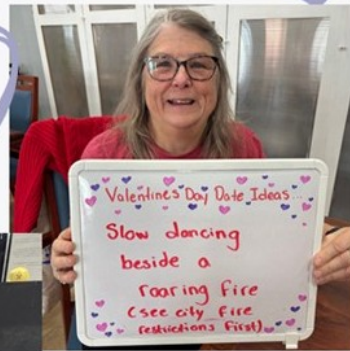 Valentines Day Date Ideas...
Slow dancing
beside a
roaring fire
(see city fire
restrictions first)